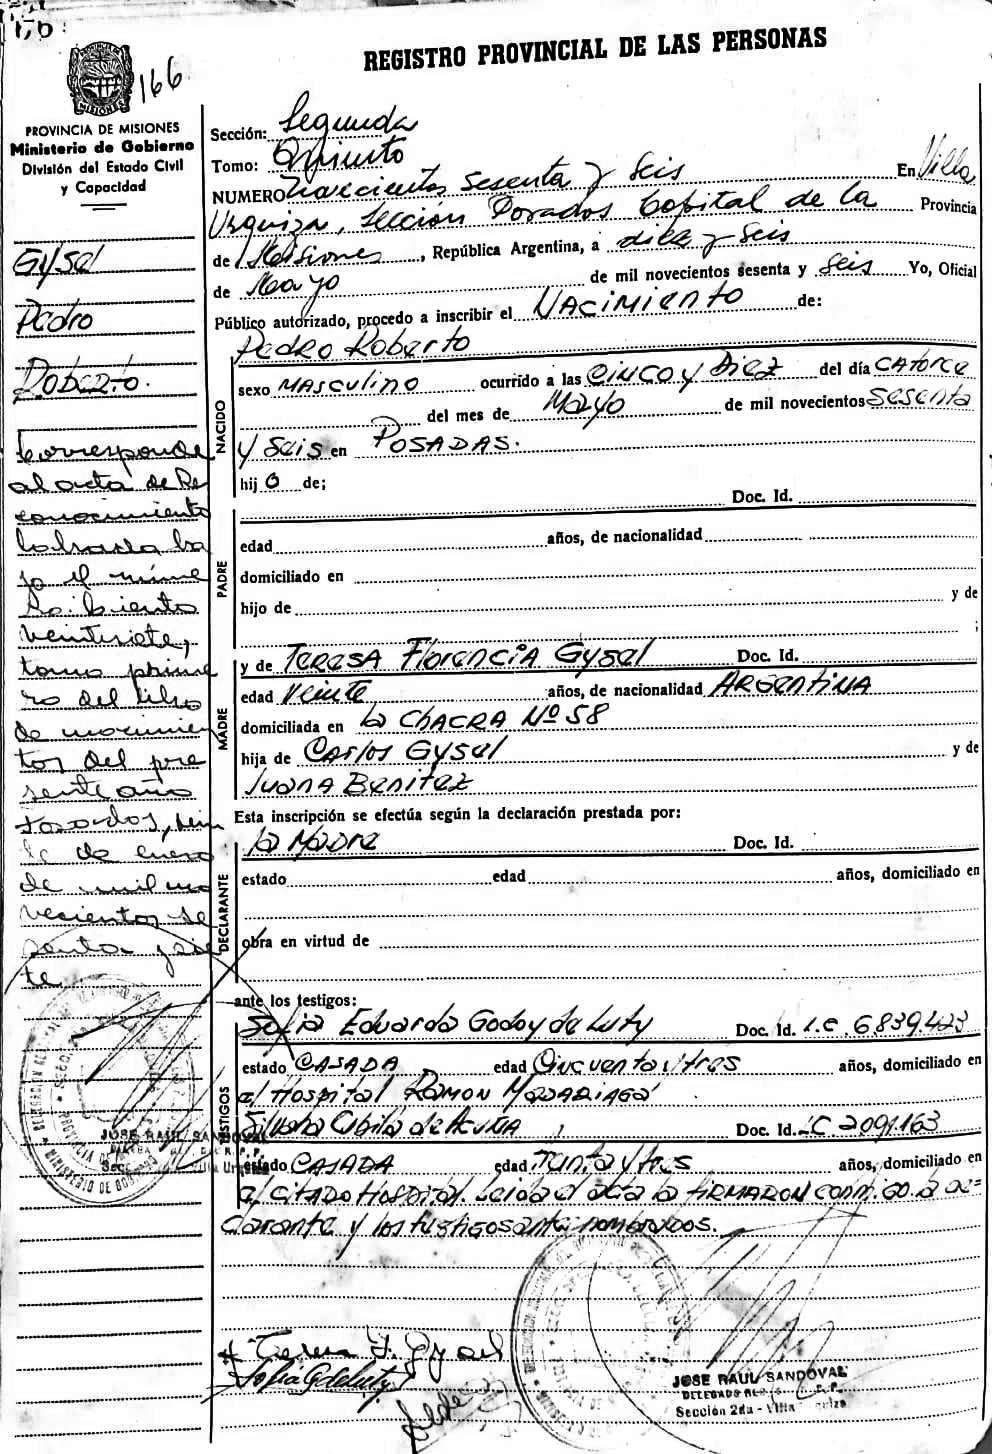 166
REGISTRO PROVINCIAL DE LAS PERSONAS
PROVINCIA DE MISIONES
Ministerio de Gobierno
División del Estado Civil
y Capacidad
Gysel
Pedro
Roberto.
Corresponde
al acta de Re
conocimiento
labrada ba
jo el núme
ro: Ciento
veintisiete,
tomo prime
ro del libro
de nacimien
tos del pre
sente año
Posadas,
de enero
de mil no
vecientos se
senta y sie
te.
Sección: Segunda
Tomo: Quinto
NUMERO Trescientos Sesenta y Seis En Villa
Urquiza, Sección Posadas Capital de la Provincia
de Misiones, República Argentina, a diez y Seis
de Mayo de mil novecientos sesenta y Seis Yo, Oficial
Público autorizado, procedo a inscribir el NACIMIENTO de:
NACIDO
Pedro Roberto
sexo MASCULINO ocurrido a las CINCO y DIEZ del día CATORCE
del mes de MAYO de mil novecientos SESENTA
Y SEIS en POSADAS.
hij O de;
Doc. Id.
PADRE
edad años, de nacionalidad
domiciliado en
hijo de y de
;
MADRE
y de TERESA FLORENCIA Gysel Doc. Id.
edad Veinte años, de nacionalidad ARGENTINA
domiciliada en la CHACRA Nº 58
hija de CARLOS Gysel y de
JUANA BENITEZ
Esta inscripción se efectúa según la declaración prestada por:
DECLARANTE
la MADRE Doc. Id.
estado edad años, domiciliado en
obra en virtud de
ante los testigos:
TESTIGOS
Sofia Eduarda Godoy de Luty Doc. Id. L.C. 6.839.423
estado CASADA edad Cincuenta y tres años, domiciliado en
el Hospital RAMON MADARIAGA
Doc. Id. L.C. 2.091.163
estado CASADA edad Treinta y tres años, domiciliado en
el CITADO HOSPITAL. Leida el acta la FIRMARON conmigo la de=
clarante y los testigos ante nombrados.
JOSE RAUL SANDOVAL
Teresa F. Gysel
Sofia G de Luty
JOSE RAUL SANDOVAL
Sección 2da - Villa Urquiza